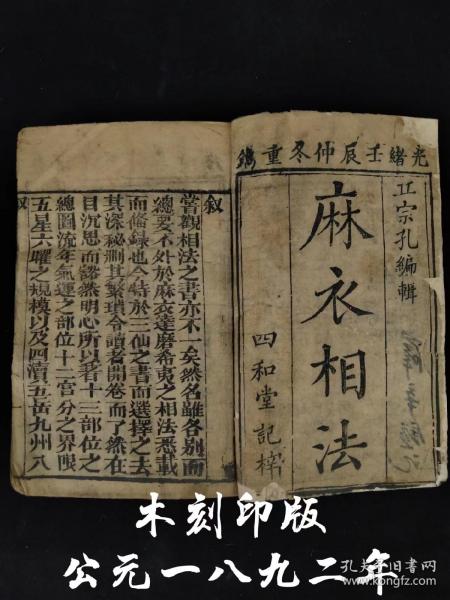 光緒壬辰仲冬重鐫
丘宗孔編輯
麻衣相法
四和堂記梓
叙
嘗觀相法之書亦不一矣然名雖各別而
總要不外於麻衣達磨希夷之相法悉載
而備錄也今特於三仙之書而選擇之去
其深秘刪其繁瑣令讀者開卷而了然在
目沉思而豁然明心所以著十三部位之
總圖流年氣運之部位十二宮分之界限
五星六曜之規模以及四瀆五岳九州八
叙
木刻印版
公元一八九二年
孔夫子旧书网
www.kongfz.com